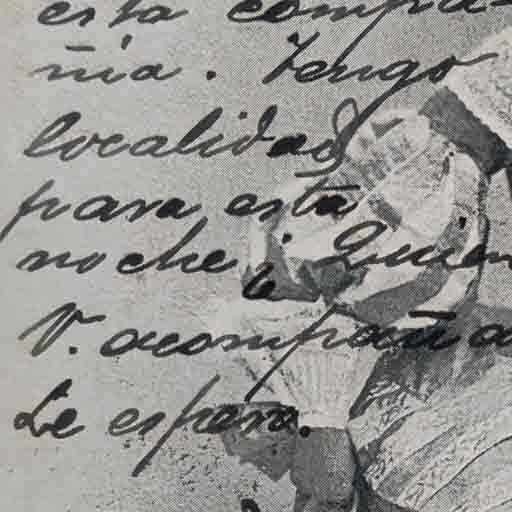 esta compa-
ñia. Tengo
localidad
para esta
noche; ¿Quien
V. acompañar
Le espero.